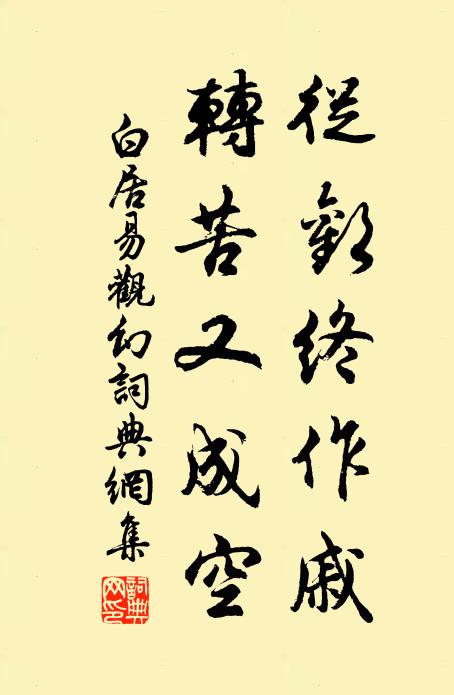 從歡終作戚
轉苦又成空
白居易觀幻詞典網集
詞典
網印